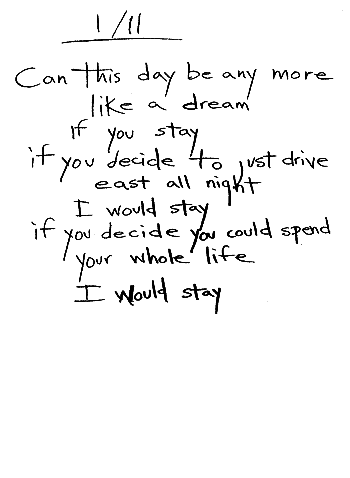 1/11
Can this day be any more
like a dream
if you stay
if you decide to just drive
east all night
I would stay
if you decide you could spend
your whole life
I would stay